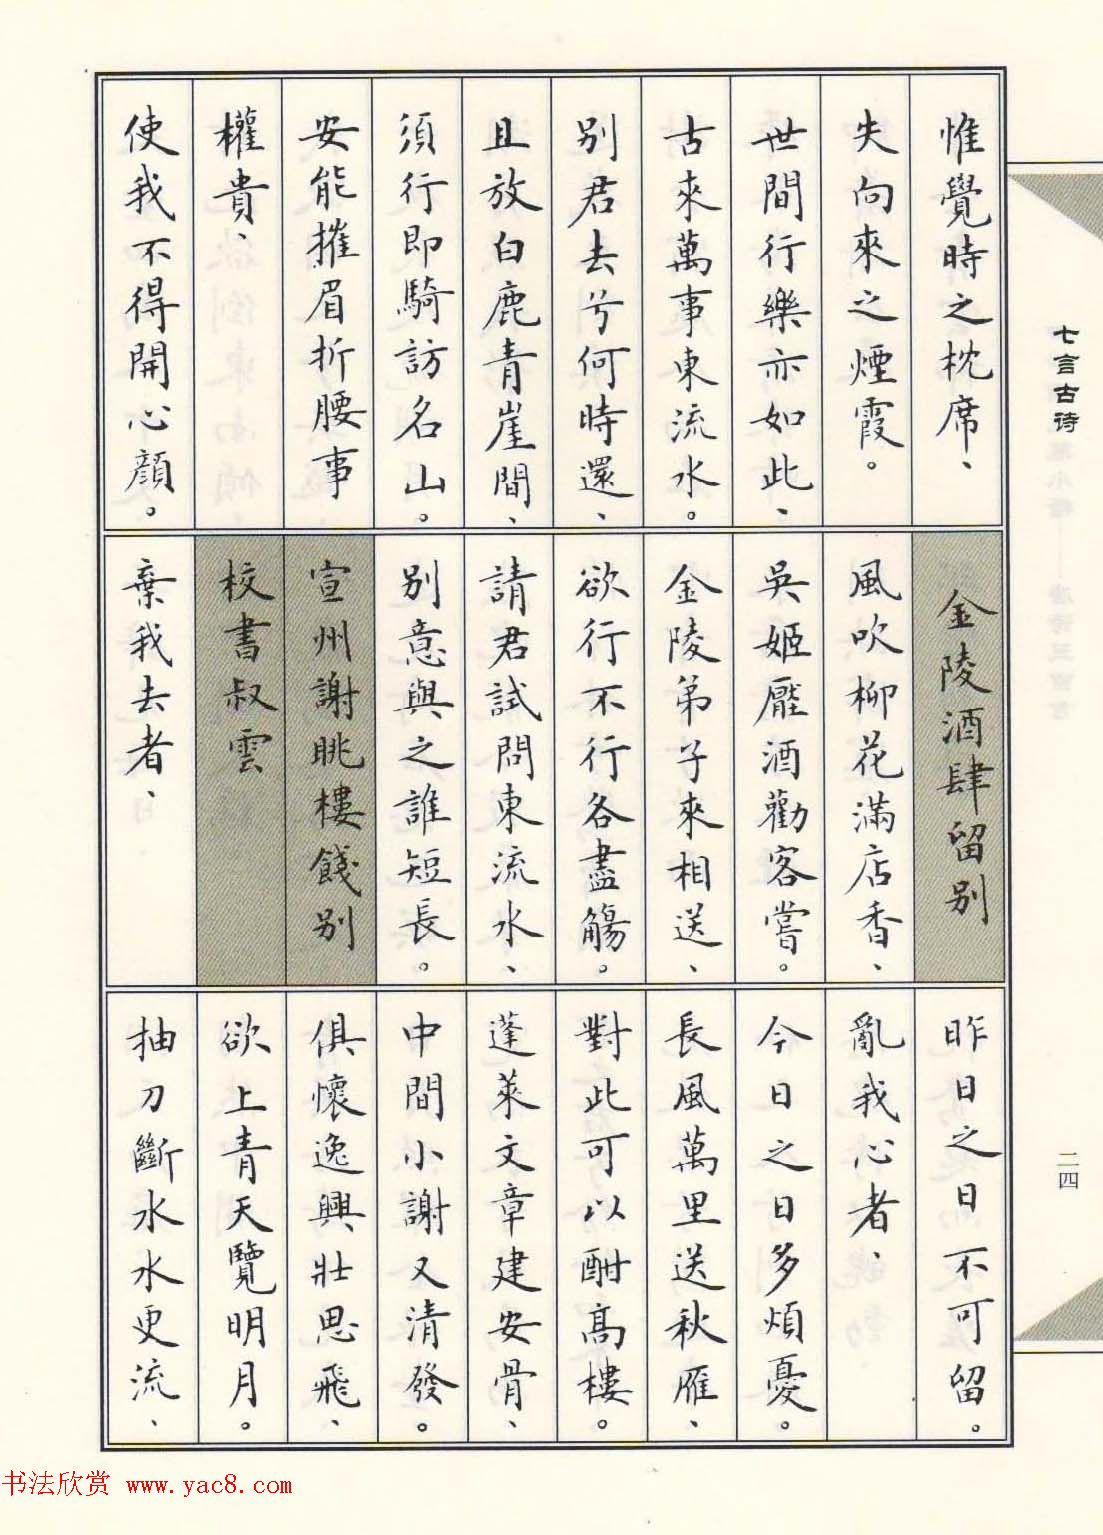 惟覺時之枕席、
失向來之煙霞。
世間行樂亦如此、
古來萬事東流水。
別君去兮何時還、
且放白鹿青崖間、
須行即騎訪名山。
安能摧眉折腰事
權貴、
使我不得開心顔。
金陵酒肆留别
風吹柳花滿店香、
吳姬壓酒勸客嘗。
金陵弟子來相送、
欲行不行各盡觴。
請君試問東流水、
别意與之誰短長。
宣州謝眺樓餞别
校書叔雲
棄我去者、
昨日之日不可留。
亂我心者、
今日之日多煩憂。
長風萬里送秋雁、
對此可以酣高樓。
蓬萊文章建安骨、
中間小謝又清發。
俱懷逸興壯思飛、
欲上青天覽明月。
抽刀斷水水更流、
七言古诗
二四
书法欣赏 www.yac8.com